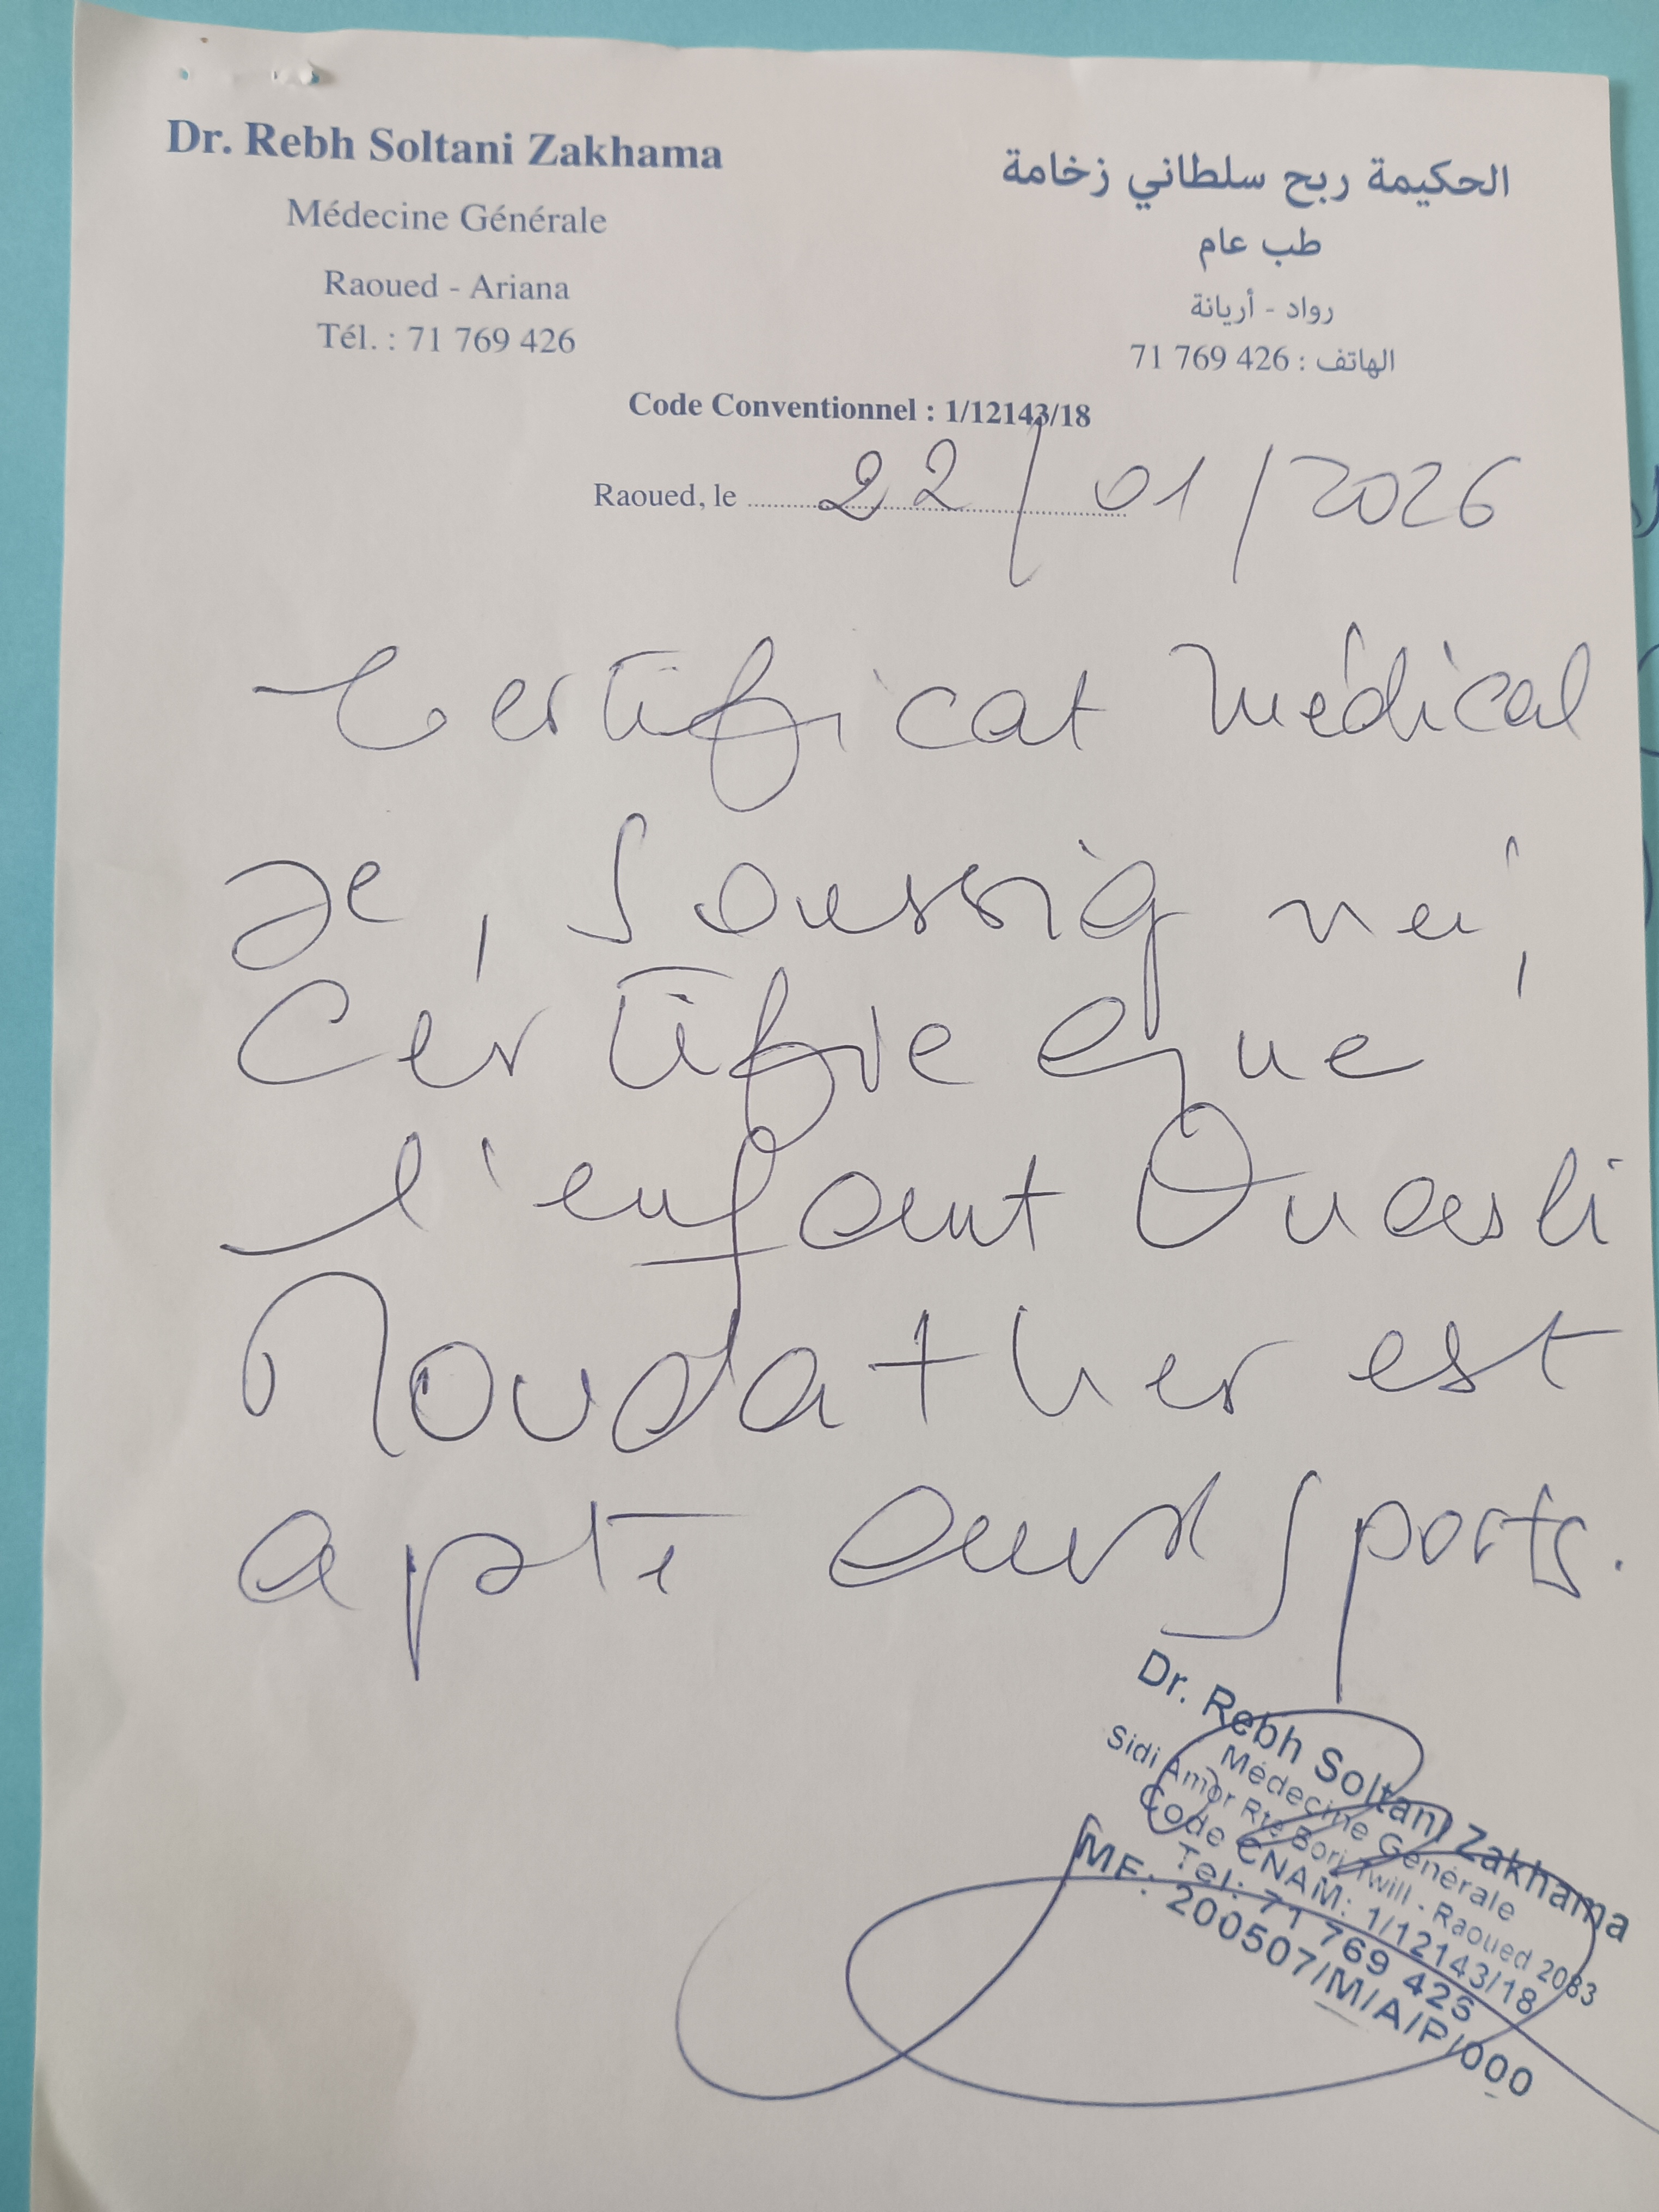 Dr. Rebh Soltani Zakhama
Médecine Générale
Raoued - Ariana
Tél. : 71 769 426
الحكيمة ربح سلطاني زخامة
طب عام
رواد - أريانة
الهاتف : 426 769 71
Code Conventionnel : 1/12143/18
Raoued, le 22/01/2026
Certificat médical
Je, Soussigné,
Certifie que
l'enfant Ouesli
Moudather est
apte aux sports.
Dr. Rebh Soltani Zakhama
Médecine Générale
Sidi Amor Rte Borj Twill - Raoued 2083
Code CNAM: 1/12143/18
Tel: 71 769 426
MF: 200507/M/A/P/000